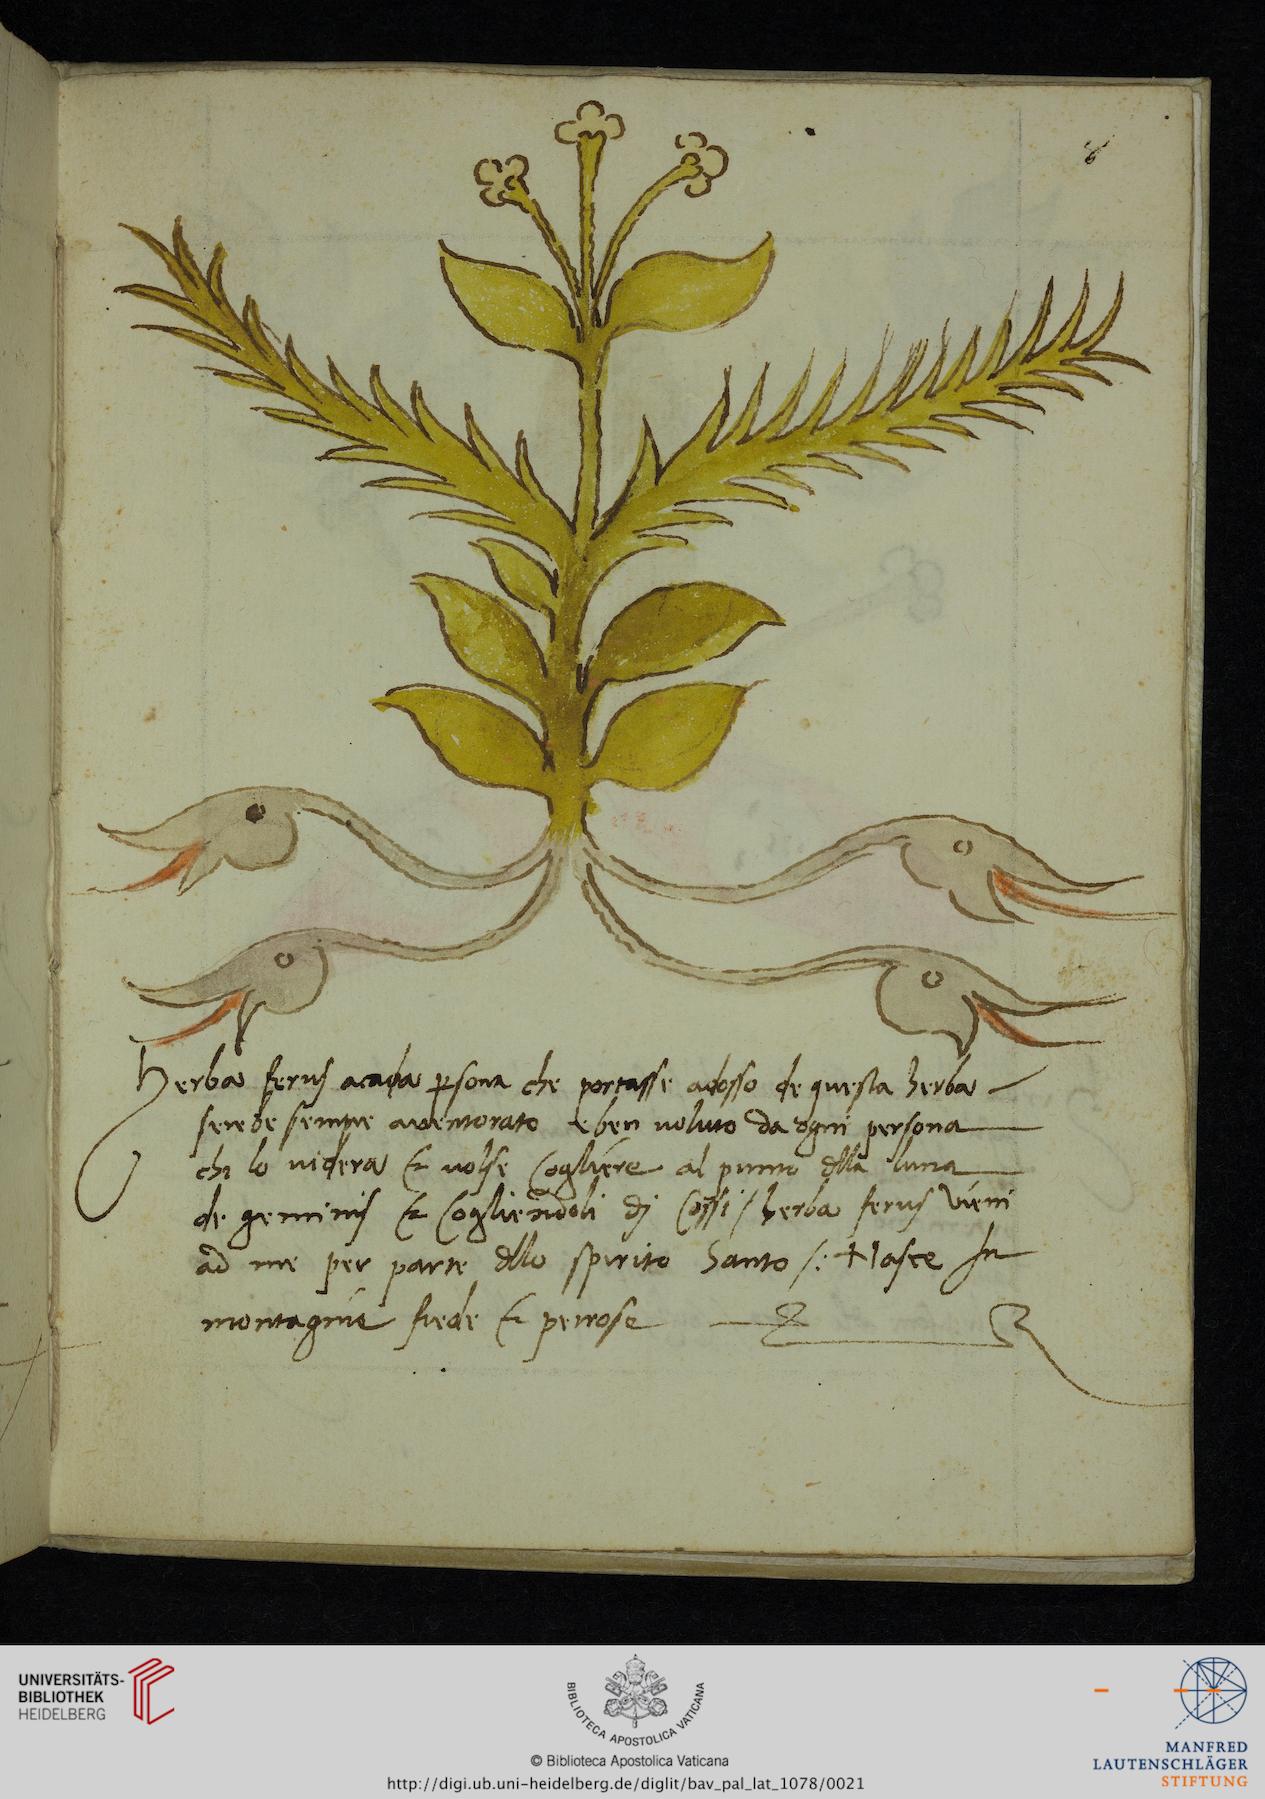 8
Herba ferus acada psona che portasse adosso de questa herba
serebe sempre aventorato e ben voluto da ogni persona
chi lo videra & volse Cogliere al punto dlla luna
de geminis & Cogliendoli dj Cossi / herba ferus vieni
ad me per parte dllo spirito Santo /: Nasce In
montagnie frede & petrose
UNIVERSITÄTS-
BIBLIOTHEK
HEIDELBERG
BIBLIOTECA APOSTOLICA VATICANA
© Biblioteca Apostolica Vaticana
http://digi.ub.uni-heidelberg.de/diglit/bav_pal_lat_1078/0021
MANFRED
LAUTENSCHLÄGER
STIFTUNG